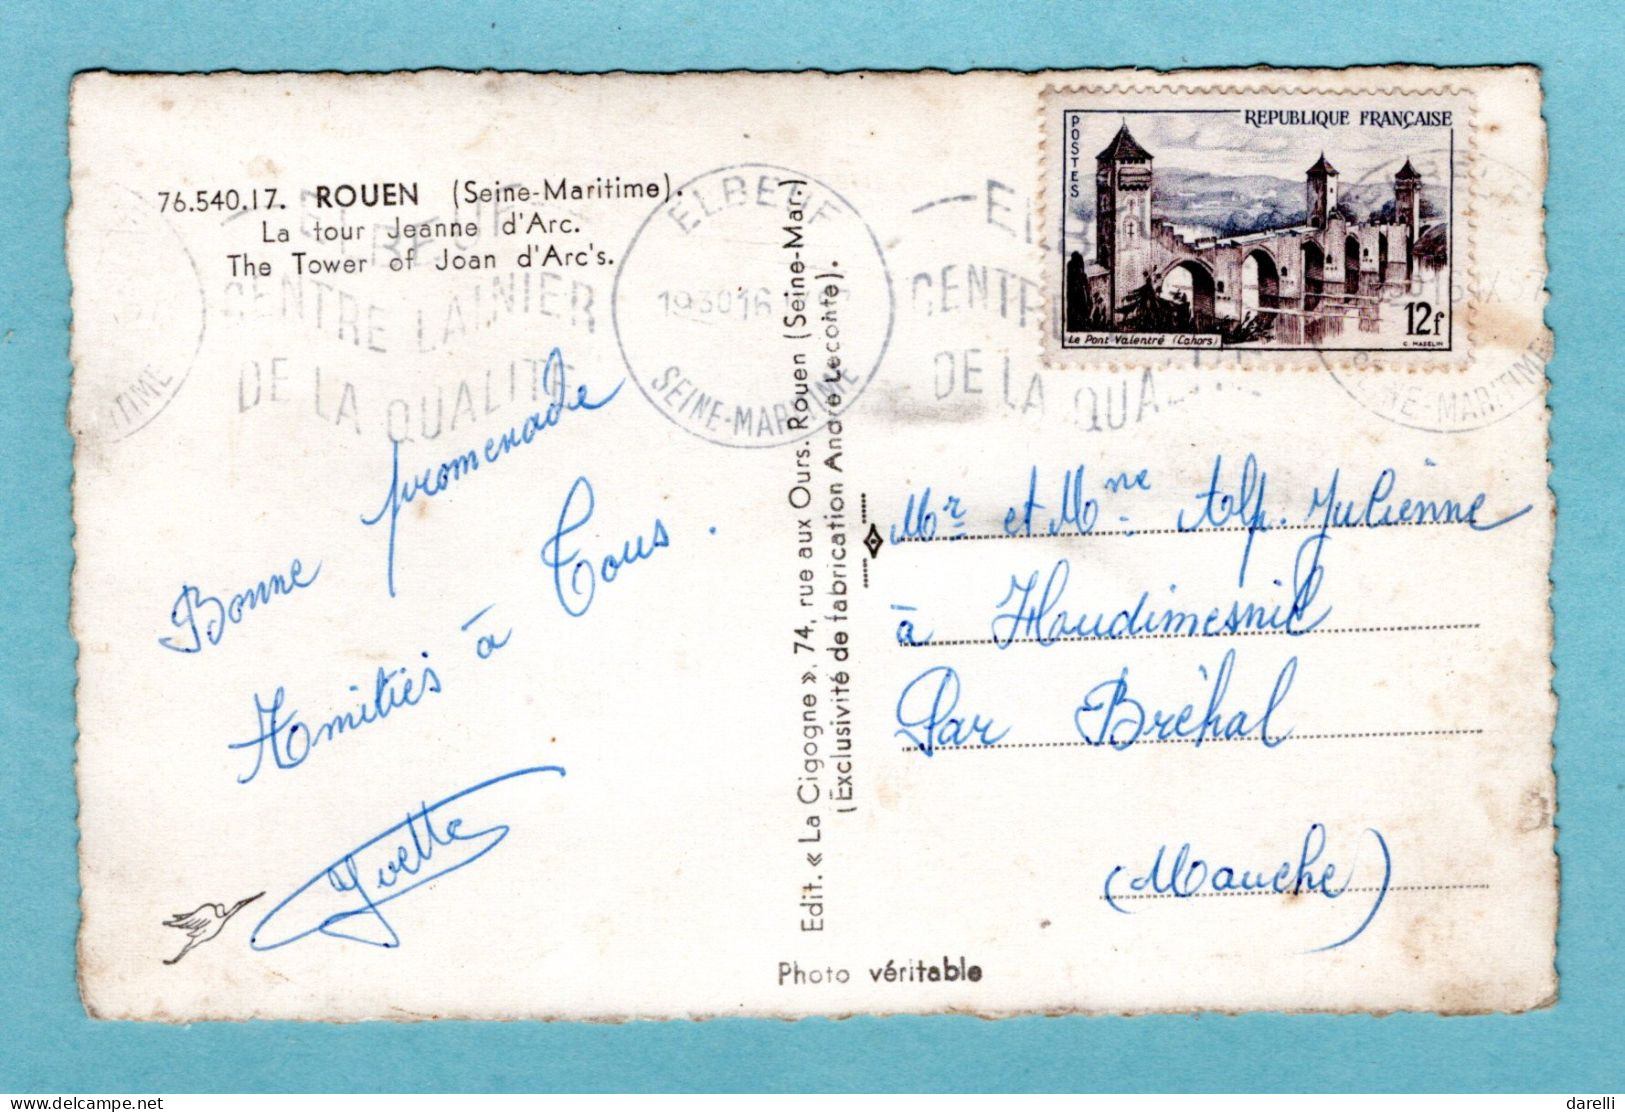 76.540.17. ROUEN (Seine-Maritime).
La tour Jeanne d'Arc.
The Tower of Joan d'Arc's.
ELBEUF
CENTRE LAINIER
DE LA QUALITÉ
ELBEUF
1930 16
SEINE-MARITIME
CENTRE
DE LA QUAL
SEINE-MARITIME
POSTES
REPUBLIQUE FRANÇAISE
Le Pont Valentré (Cahors)
12f
C. MAZELIN
Bonne promenade
Amitiés à Tous.
Yvette
Edit. « La Cigogne ». 74, rue aux Ours. Rouen (Seine-Mar.)
(Exclusivité de fabrication André Leconte).
Photo véritable
Mr et Mme Alp. Julienne
à Houdimesnil
Par Bréhal
(Manche)
darelli
delcampe.net